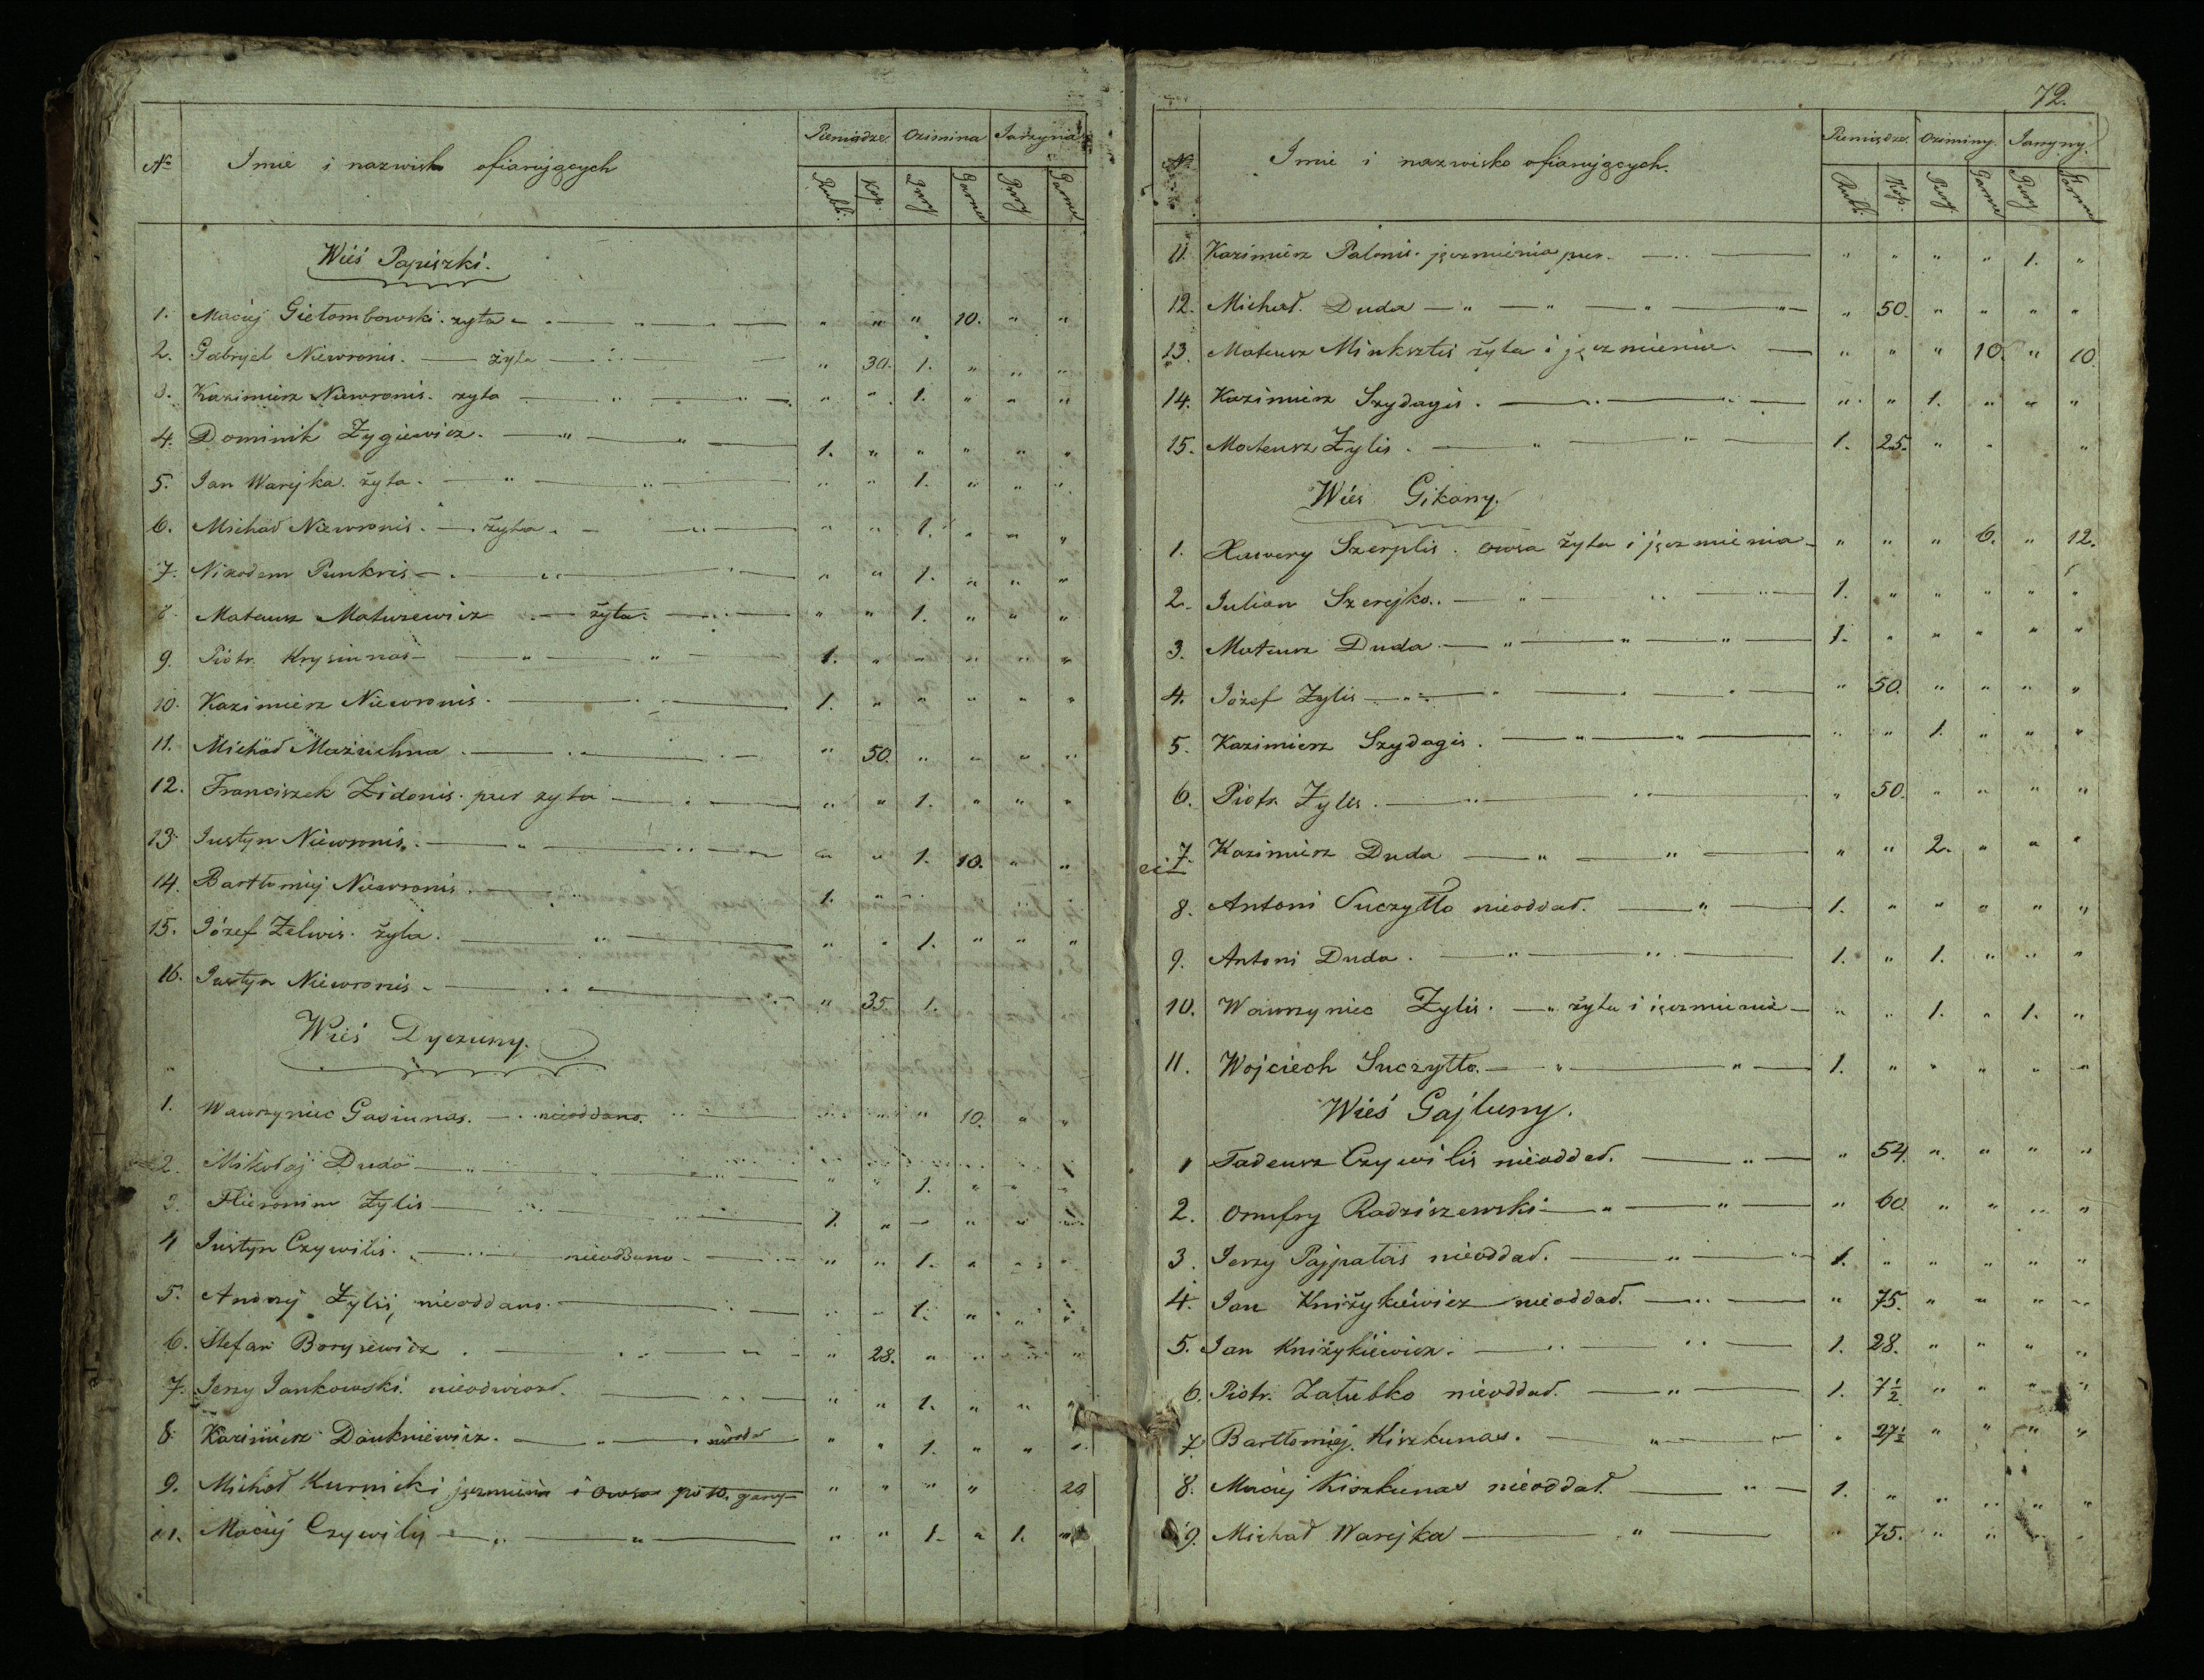 Pieniądze. Ozimina Jarzyna
№ Imie i nazwisko ofiarujących
Rubli. Kop. Pury Garnce Pury Garnce
Wieś Papiszki.
1. Maciej Giełombowski. żyta " " " 10. " "
2. Gabryel Niewronis. żyta " 30. 1. " " "
3. Kazimierz Niewronis. żyta " " 1. " " "
4. Dominik Zygiewicz. 1. " " " " "
5. Jan Warejka. żyta. " " 1. " " "
6. Michał Niewronis. żyta. " " 1. " " "
7. Nikodem Punkris " " 1. " " "
8. Mateusz Matusewicz żyta. " " 1. " " "
9. Piotr Krysiunas 1. " " " " "
10. Kazimierz Niewronis. 1. " " " " "
11. Michał Maziuchna. " 50. " " " "
12. Franciszek Zidonis. pur żyta " " 1. " " "
13. Justyn Niewronis. " " 1. 10. " "
14. Bartłomiej Niewronis. 1. " "
15. Józef Zelwis. żyta. " " 1. " " "
16. Justyn Niewronis. " 35 1.
Wieś Dyczuny.
1. Wawrzyniec Gasiunas. nieoddano. " " " 10. " "
2. Mikołaj Duda " " 1. " " "
3. Hieronim Zylis 1. " " " " "
4 Justyn Czywilis. nieoddano " " 1. " " "
5. Andrzej Zylis, nieoddano. " " 1. " " "
6. Stefan Borysewicz. " 28. " " " "
7. Jerzy Jankowski. nieodwiozł. " " 1. " " "
8. Kazimierz Daukniewicz. nieoddał " " 1. " " "
9. Michał Kurnicki jęczmienia i owsa po 10. garcy " " " " 20
11. Maciej Czywilis " " 1. " 1. "
72.
Pieniądze. Oziminy. Jarzyny.
№ Imie i nazwisko ofiarujących.
Rubli. Kop. Pury Garnce Pury Garnce
11. Kazimierz Palonis. jęczmienia pur. " " " " 1. "
12. Michał. Duda " 50. " " " "
13. Mateusz Minksztis żyta i jęczmienia. " " " 10. " 10.
14. Kazimierz Szydagis. " " 1. " " "
15. Mateusz Zylis. 1. 25. " " "
Wieś Gikany.
1. Xawery Szerplis. owsa żyta i jęczmienia " " " 6. " 12.
2. Julian Szerejko. 1. " " " " "
3. Mateusz Duda 1. " " " " "
4. Józef Zylis " 50. " " " "
5. Kazimierz Szydagis. " " 1. " " "
6. Piotr Zylis. " 50. " " " "
7. Kazimierz Duda " " 2. " " "
8. Antoni Suczyłło nieoddał. 1. " " " " "
9. Antoni Duda. 1. " 1. " " "
10. Wawrzyniec Zylis. żyta i jęczmienia " " 1. " 1. "
11. Wojciech Suczyłło. 1. " " " " "
Wieś Gajluny.
1 Tadeusz Czywilis nieoddał. " 54. " " " "
2. Onufry Radziszewski " 60 " " " "
3. Jerzy Pajpałas nieoddał. 1. " " " " "
4. Jan Kniżykiewicz nieoddał. " 75. " " " "
5. Jan Kniżykiewicz. 1. 28. " " " "
6. Piotr. Załubko nieoddał. 1. 7½ " " " "
7. Bartłomiej. Kiszkunas. " 27½ " " " "
8. Maciej Kiszkunas nieoddał. 1. " " " " "
9. Michał Warejka " 75. " " " "